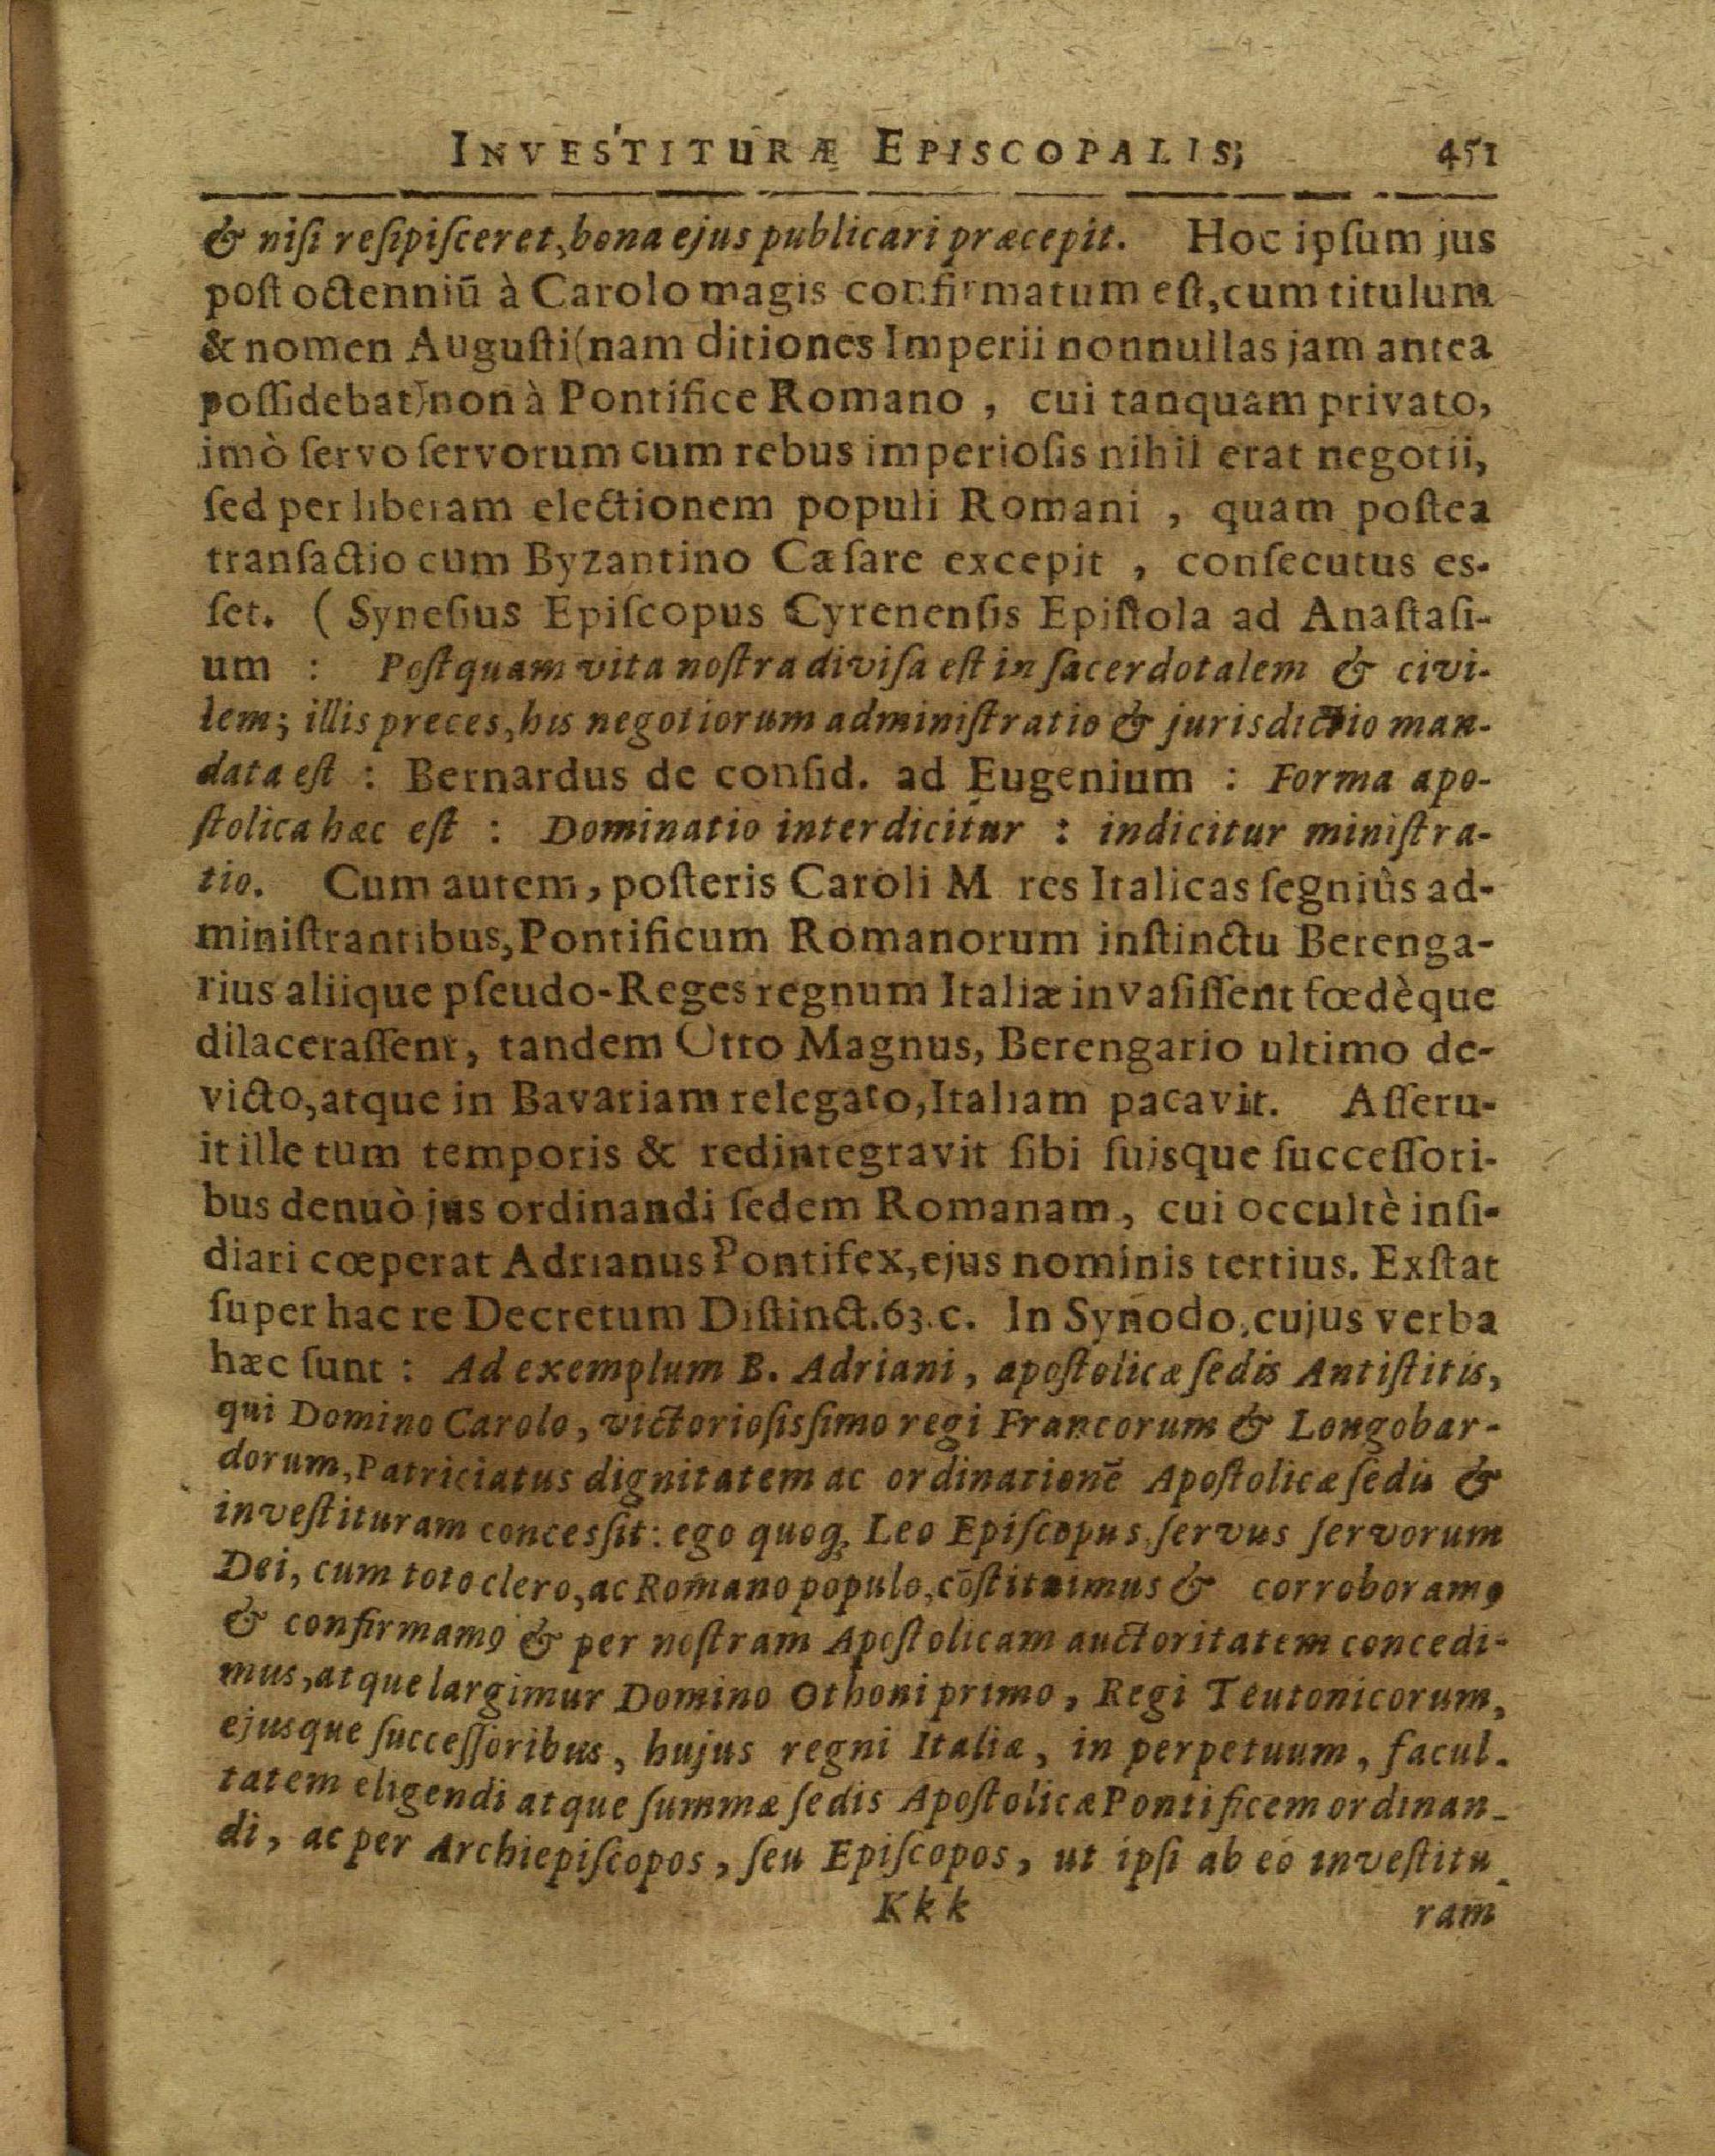 INVESTITURÆ EPISCOPALIS; 451
& niſi reſipiſceret, bona ejus publicari præcepit. Hoc ipſum jus
poſt octenniū à Carolo magis confirmatum eſt, cum titulum
& nomen Auguſti (nam ditiones Imperii nonnullas jam antea
poſſidebat) non à Pontifice Romano, cui tanquam privato,
imò ſervo ſervorum cum rebus imperioſis nihil erat negotii,
ſed per liberam electionem populi Romani, quam poſtea
tranſactio cum Byzantino Cæſare excepit, conſecutus es-
ſet. (Syneſius Epiſcopus Cyrenenſis Epiſtola ad Anaſtaſi-
um : Poſtquam vita noſtra diviſa eſt in ſacerdotalem & civi-
lem; illis preces, his negotiorum adminiſtratio & jurisdictio man-
data eſt : Bernardus de conſid. ad Eugenium : Forma apo-
ſtolica hæc eſt : Dominatio interdicitur : indicitur miniſtra-
tio. Cum autem, poſteris Caroli M res Italicas ſegniûs ad-
miniſtrantibus, Pontificum Romanorum inſtinctu Berenga-
rius aliique pſeudo-Reges regnum Italiæ invaſiſſent fœdèque
dilaceraſſent, tandem Otto Magnus, Berengario ultimo de-
victo, atque in Bavariam relegato, Italiam pacavit. Aſſeru-
it ille tum temporis & redintegravit ſibi ſuisque ſucceſſori-
bus denuò jus ordinandi ſedem Romanam, cui occultè inſi-
diari cœperat Adrianus Pontifex, ejus nominis tertius. Exſtat
ſuper hac re Decretum Diſtinct. 63. c. In Synodo, cujus verba
hæc ſunt : Ad exemplum B. Adriani, apoſtolicæ ſedis Antiſtitis,
qui Domino Carolo, victorioſisſimo regi Francorum & Longobar-
dorum, Patriciatus dignitatem ac ordinationē Apoſtolicæ ſedis &
inveſtituram concesſit: ego quoq; Leo Epiſcopus ſervus ſervorum
Dei, cum toto clero, ac Romano populo, cōſtituimus & corroboramꝰ
& confirmamꝰ & per noſtram Apoſtolicam auctoritatem concedi-
mus, atque largimur Domino Othoni primo, Regi Teutonicorum,
ejusque ſucceſſoribus, hujus regni Italiæ, in perpetuum, facul-
tatem eligendi atque ſummæ ſedis Apoſtolicæ Pontificem ordinan-
di, ac per Archiepiſcopos, ſeu Epiſcopos, ut ipſi ab eo inveſtitu-
Kkk ram